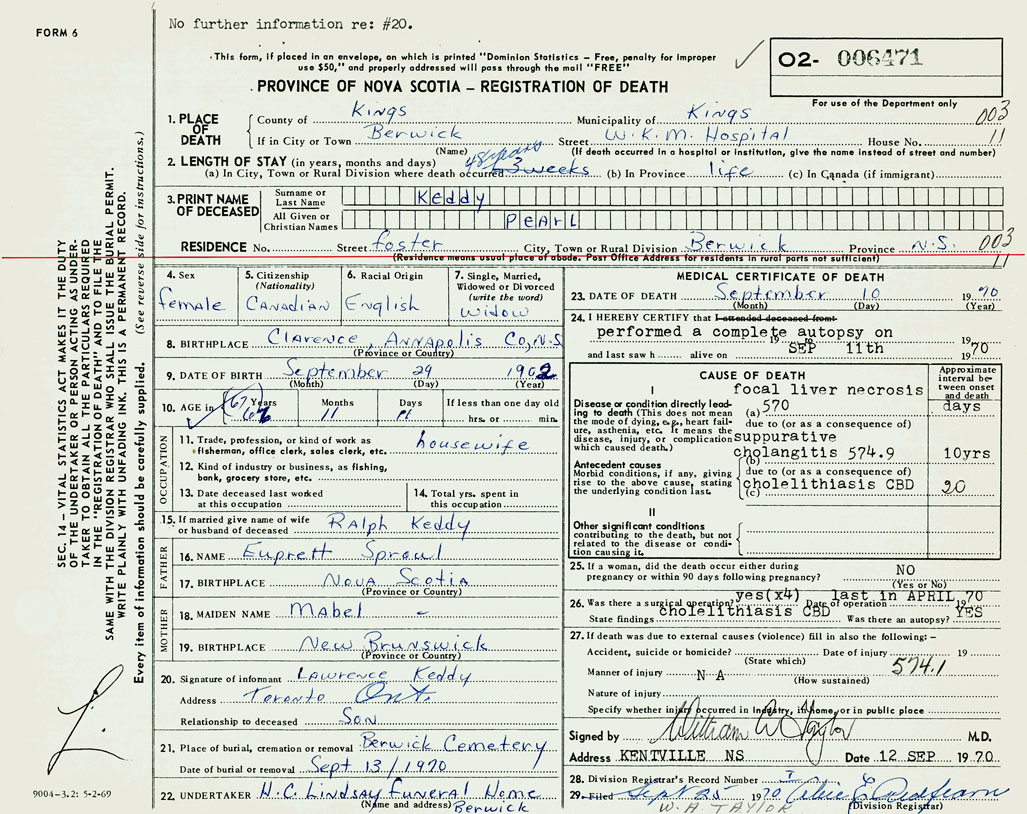 FORM 6
No further information re: #20.
This form, if placed in an envelope, on which is printed "Dominion Statistics – Free, penalty for Improper
use $50," and properly addressed will pass through the mail "FREE"
O2- 006471
PROVINCE OF NOVA SCOTIA – REGISTRATION OF DEATH
For use of the Department only
1. PLACE OF DEATH
County of Kings Municipality of Kings 003
If in City or Town Berwick Street W.K.M. Hospital House No. 11
(Name) (If death occurred in a hospital or institution, give the name instead of street and number)
2. LENGTH OF STAY (in years, months and days) 48 years
(a) In City, Town or Rural Division where death occurred 3 weeks (b) In Province life (c) In Canada (if immigrant)
3. PRINT NAME OF DECEASED
Surname or Last Name Keddy
All Given or Christian Names PEARL
RESIDENCE No. Street foster City, Town or Rural Division Berwick Province N.S. 003
(Residence means usual place of abode. Post Office Address for residents in rural parts not sufficient) 11
4. Sex female
5. Citizenship (Nationality) CANADIAN
6. Racial Origin English
7. Single, Married, Widowed or Divorced (write the word) widow
8. BIRTHPLACE Clarence, Annapolis Co, N.S
(Province or Country)
9. DATE OF BIRTH September 29 1902
(Month) (Day) (Year)
10. AGE in Years 67 Months 11 Days 11 If less than one day old
hrs. or min.
OCCUPATION
11. Trade, profession, or kind of work as fisherman, office clerk, sales clerk, etc. housewife
12. Kind of industry or business, as fishing, bank, grocery store, etc.
13. Date deceased last worked at this occupation
14. Total yrs. spent in this occupation
15. If married give name of wife or husband of deceased RALPH Keddy
FATHER
16. NAME Euprett Sproul
17. BIRTHPLACE NOVA SCOTIA
(Province or Country)
MOTHER
18. MAIDEN NAME MABel –
19. BIRTHPLACE New Brunswick
(Province or Country)
20. Signature of informant LAWRENCE Keddy
Address Toronto Ont.
Relationship to deceased SON
21. Place of burial, cremation or removal Berwick Cemetery
Date of burial or removal Sept 13/1970
22. UNDERTAKER H.C. Lindsay Funeral Home
(Name and address) Berwick
MEDICAL CERTIFICATE OF DEATH
23. DATE OF DEATH September 10 1970
(Month) (Day) (Year)
24. I HEREBY CERTIFY that I attended deceased from:
performed a complete autopsy on
19 to
and last saw h alive on SEP 11th 1970
CAUSE OF DEATH
Approximate interval between onset and death
I focal liver necrosis
Disease or condition directly leading to death (This does not mean the mode of dying, e.g., heart failure, asthenia, etc. It means the disease, injury, or complication which caused death.)
(a) 570 days
due to (or as a consequence of)
suppurative
cholangitis 574.9 10yrs
(b)
Antecedent causes
Morbid conditions, if any, giving rise to the above cause, stating the underlying condition last.
due to (or as a consequence of)
cholelithiasis CBD 20
(c)
II
Other significant conditions contributing to the death, but not related to the disease or condition causing it.
25. If a woman, did the death occur either during pregnancy or within 90 days following pregnancy? NO
(Yes or No)
26. Was there a surgical operation? yes(x4) Date of operation last in APRIL 1970
State findings cholelithiasis CBD Was there an autopsy? YES
27. If death was due to external causes (violence) fill in also the following: –
Accident, suicide or homicide? Date of injury 19
(State which) 574.1
Manner of injury N A
(How sustained)
Nature of injury
Specify whether injury occurred in industry, in home, or in public place
Signed by William A Taylor M.D.
Address KENTVILLE NS Date 12 SEP 1970
28. Division Registrar's Record Number
29. Filed Sept 25 1970
W. A. TAYLOR (Division Registrar)
9004-3.2: 5-2-69
SEC. 14 – VITAL STATISTICS ACT MAKES IT THE DUTY
OF THE UNDERTAKER OR PERSON ACTING AS UNDER-
TAKER TO OBTAIN ALL THE PARTICULARS REQUIRED
IN THE "REGISTRATION OF DEATH" AND TO FILE THE
SAME WITH THE DIVISION REGISTRAR WHO SHALL ISSUE THE BURIAL PERMIT.
WRITE PLAINLY WITH UNFADING INK. THIS IS A PERMANENT RECORD.
Every item of information should be carefully supplied. (See reverse side for instructions.)